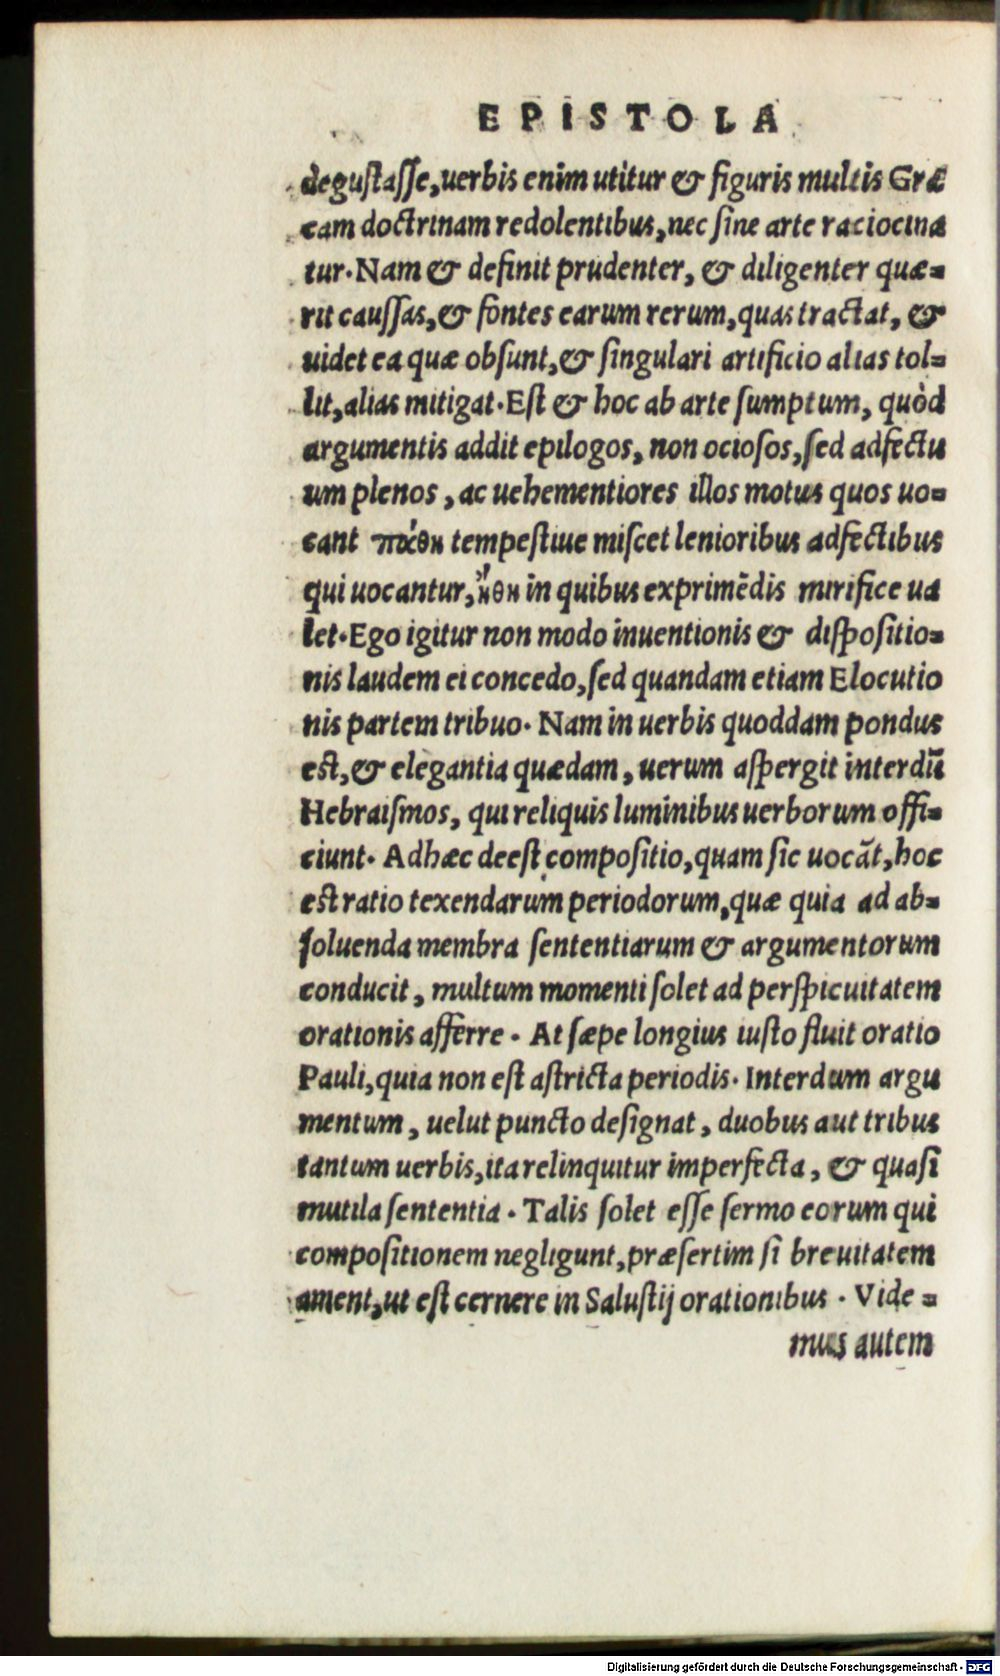 EPISTOLA
degustasse, uerbis enim utitur & figuris multis Græ
cam doctrinam redolentibus, nec sine arte raciocina
tur. Nam & definit prudenter, & diligenter quæ-
rit caussas, & fontes earum rerum, quas tractat, &
uidet ea quæ obsunt, & singulari artificio alias tol-
lit, alias mitigat. Est & hoc ab arte sumptum, quòd
argumentis addit epilogos, non ociosos, sed adfectu
um plenos, ac uehementiores illos motus quos uo-
cant πάθη tempestiue miscet lenioribus adfectibus
qui uocantur, ἤθη in quibus exprimēdis mirifice ua
let. Ego igitur non modo inuentionis & dispositio-
nis laudem ei concedo, sed quandam etiam Elocutio
nis partem tribuo. Nam in uerbis quoddam pondus
est, & elegantia quædam, uerum aspergit interdū
Hebraismos, qui reliquis luminibus uerborum offi-
ciunt. Adhæc deest compositio, quam sic uocāt, hoc
est ratio texendarum periodorum, quæ quia ad ab-
soluenda membra sententiarum & argumentorum
conducit, multum momenti solet ad perspicuitatem
orationis afferre. At sæpe longius iusto fluit oratio
Pauli, quia non est astricta periodis. Interdum argu
mentum, uelut puncto designat, duobus aut tribus
tantum uerbis, ita relinquitur imperfecta, & quasi
mutila sententia. Talis solet esse sermo eorum qui
compositionem negligunt, præsertim si breuitatem
ament, ut est cernere in Salustij orationibus. Vide-
mus autem
Digitalisierung gefördert durch die Deutsche Forschungsgemeinschaft - DFG